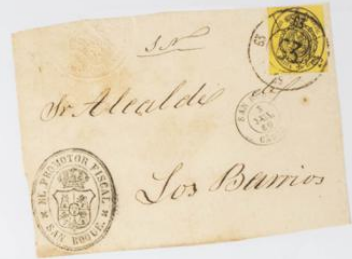 S N
Sr Alcalde de
Los Barrios
EL PROMOTOR FISCAL
SAN ROQUE.
63
SAN